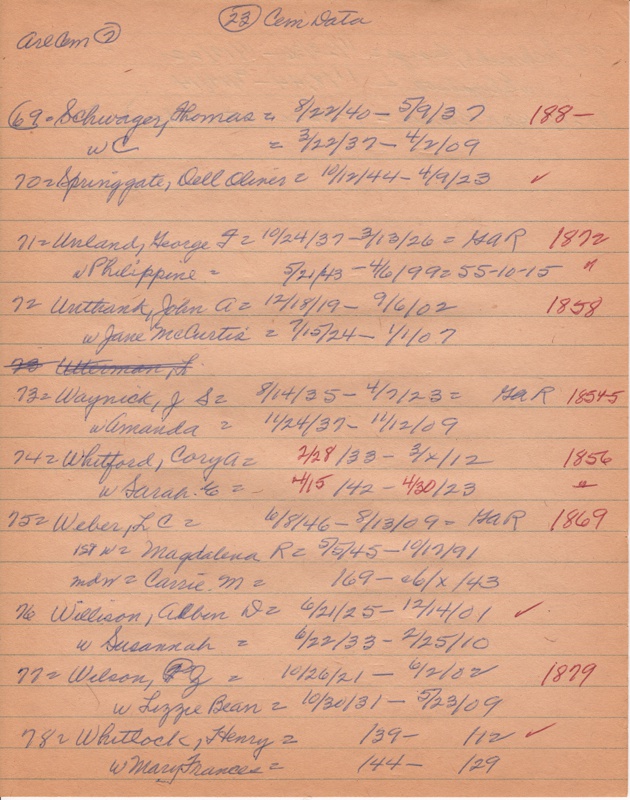 (23) Cem Data
Arl Cem (2)
69 = Schwager, Thomas = 8/22/40 - 5/9/37 188-
w C = 3/22/37 - 4/2/09
70 = Springgate, Dell Oliver = 10/12/44 - 4/9/23 ✓
71 = Unland, George F = 10/24/37 - 3/13/26 = GAR 1872
w Philippine = 5/21/43 - 4/6/99 = 55-10-15 "
72 Unthank, John A = 12/18/19 - 9/6/02 1858
w Jane McCurtis = 7/15/24 - 1/1/07
73 Utterman, L
73 = Waynick, J S = 8/14/35 - 4/7/23 = GAR
w Amanda = 11/24/37 - 11/12/09
74 = Whitford, Cory A = 2/28/33 - 3/x/12 1856
w Sarah = 4/15/42 - 4/30/23 "
75 = Weber, L C = 6/8/46 - 8/13/09 = GAR 1869
1st w = Magdalena R = 5/5/45 - 10/17/91
= Carrie M = /69 - /x/43
76 Willison, Albin D = 6/21/25 - 12/14/01 ✓
w Susannah = 6/22/33 - 2/25/10
77 = Wilson, = 10/26/21 - 6/2/02 1879
w Lizzie Bean = 10/30/31 - 5/23/09
78 = Whitlock, Henry = /39 - /12 ✓
w Mary Frances = /44 - /29